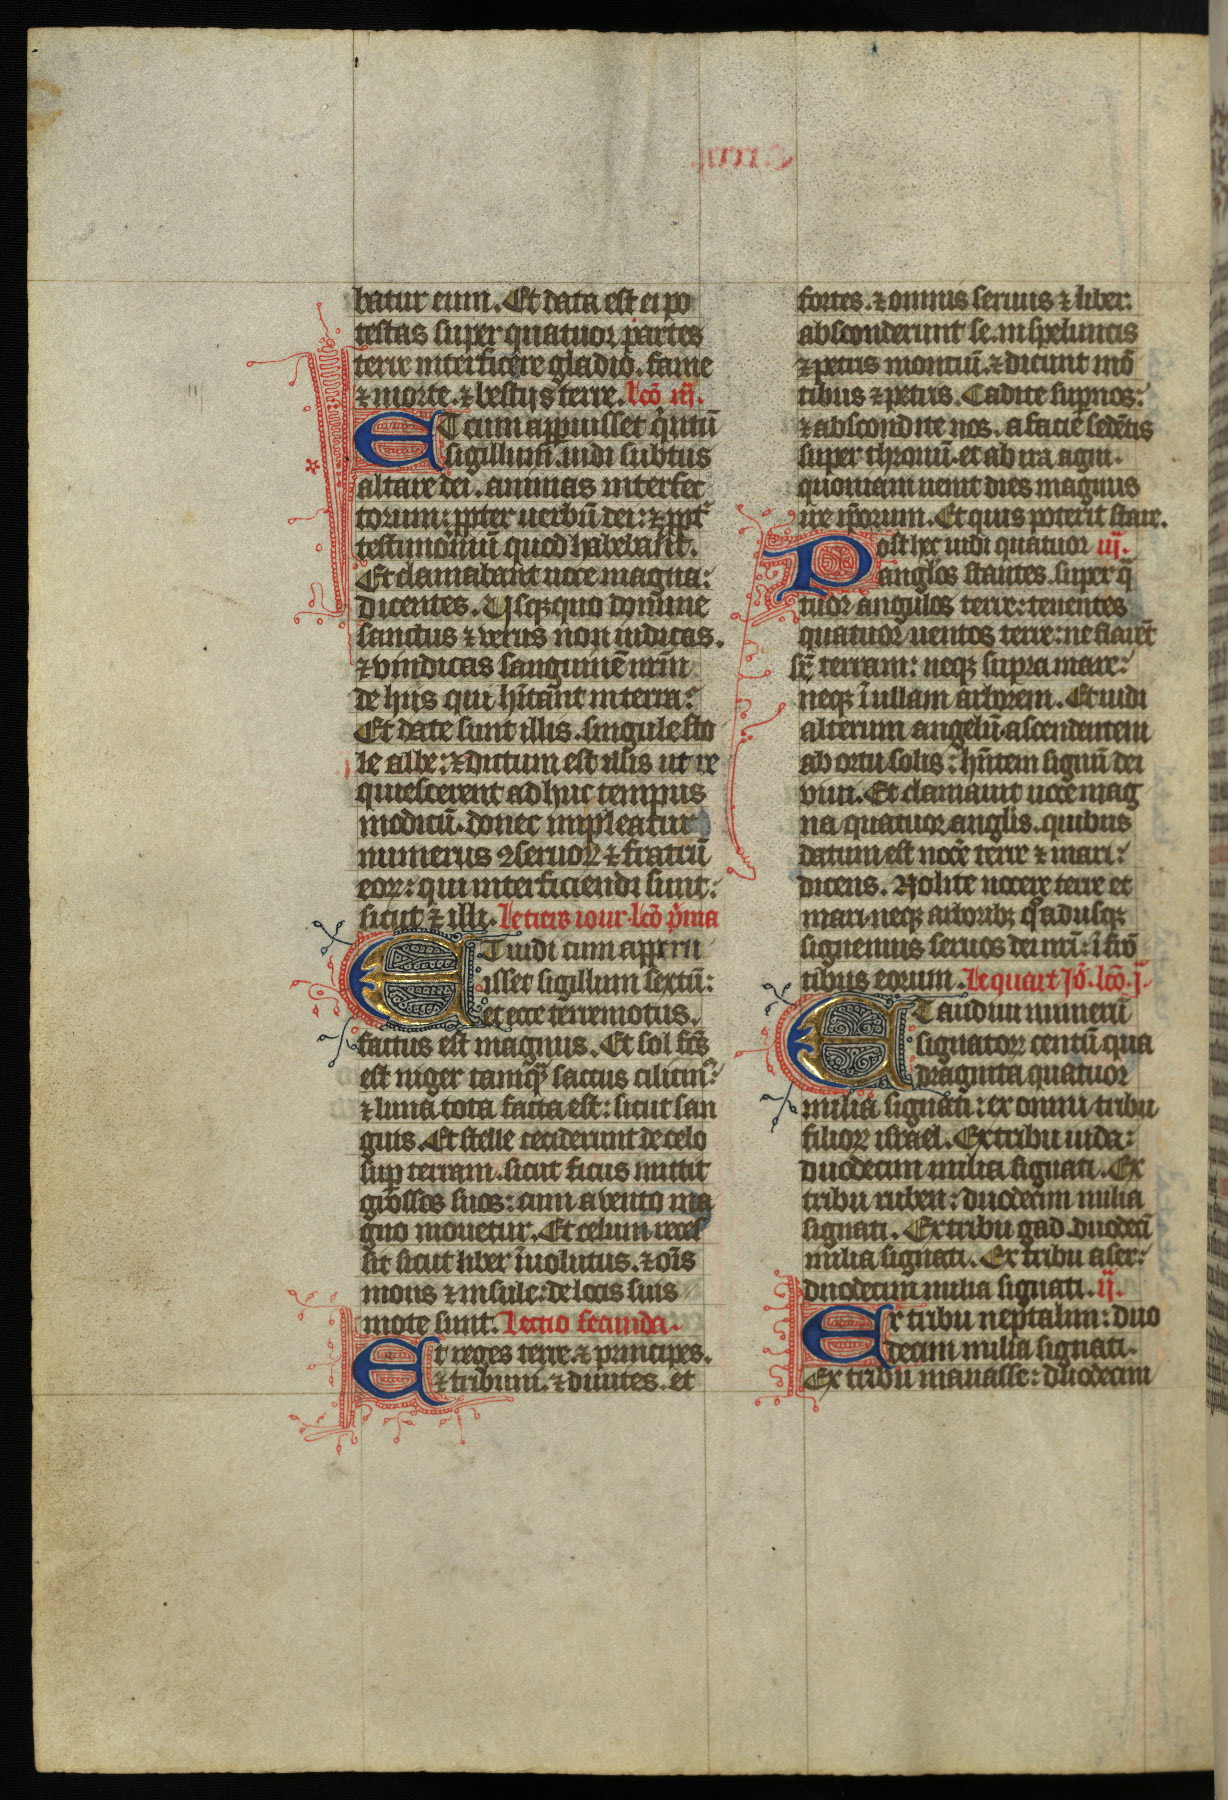 batur eum. Et data est ei po
testas super quatuor partes
terre interficere gladio. fame
⁊ morte. ⁊ bestijs terre. Lcõ iij.
ET cum apperuisset q̃ntũ
sigillum. uidi subtus
altare dei. animas interfec
torum: ppter uerbũ dei: ⁊ ppt̃
testimoniũ quod habebãt.
Et clamabant uoce magna:
dicentes. Usqꝫquo domine
sanctus ⁊ verus non iudicas.
⁊ vindicas sanguinẽ nr̃m
de hijs qui hĩtant in terra?
Et date sunt illis. singule sto
le albe: ⁊ dictum est illis ut re
quiescerent adhuc tempus
modicũ. donec impleatur
numerus ꝯseruoꝝ ⁊ fratrũ
eoꝝ: qui interficiendi sunt:
sicut ⁊ illi. Le tercis iour. lcõ p̃ma
ET uidi cum apperu
isset sigillum sextũ:
et ecce terremotus.
factus est magnus. Et sol fc̃s
est niger tamq̃ saccus cilicin9:
⁊ luna tota facta est: sicut san
guis. Et stelle ceciderunt de celo
sup terram. sicut ficus mittit
grossos suos: cum a vento ma
gno mouetur. Et celum reces
sit sicut liber ĩuolutus. ⁊ om̃s
mons ⁊ insule: de locis suis
mote sunt. Lectio secunda.
Et reges terre. ⁊ principes.
⁊ tribuni. ⁊ diuites. et
fortes. ⁊ omnis seruus ⁊ liber:
absconderunt se. in speluncis
⁊ petris montiũ. ⁊ dicunt mõ
tibus ⁊ petris. Cadite sup nos:
⁊ abscondite nos. a facie sedẽtis
super thronũ. et ab ira agni.
quoniam uenit dies magnus
ire ip̃orum. Et quis poterit stare.
Post hec uidi quatuor iij.
anglos stantes. super q̃
tuor angulos terre: tenentes
quatuor uentos terre: ne flarẽt
sr̃ terram: neqꝫ supra mare:
neqꝫ ĩ ullam arborem. Et uidi
alterum angelũ. ascendentem
ab ortu solis: hñtem signũ dei
viui. Et clamauit uoce mag
na quatuor anglis. quibus
datum est nocẽ terre ⁊ mari:
dicens. Nolite nocere terre et
mari. neqꝫ arboribꝫ q̃adusqꝫ
signemus seruos dei nr̃i: ĩ frõ
tibus eorum. Le quart jõ. lcõ. j̃.
ET audiui numerũ
signatoꝝ centũ qua
draginta quatuor
milia signati: ex omni tribu
filioꝝ israel. Ex tribu iuda:
duodecim milia signati. Ex
tribu ruben: duodecim milia
signati. Ex tribu gad. duodecĩ
milia signati. Ex tribu aser:
duodecim milia signati. ij.
Ex tribu neptalim: duo
decim milia signati.
Ex tribu manasse: duodecim